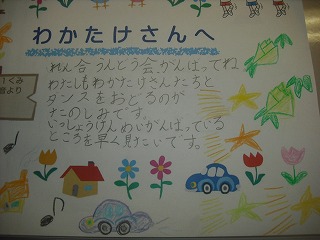 わかたけさんへ
れん合うんどう会、がんばってね
わたしもわかたけさんたちと
ダンスをおどるのが
たのしみです。
いっしょうけんめいがんばっている
ところを早く見たいです。
くみ
より